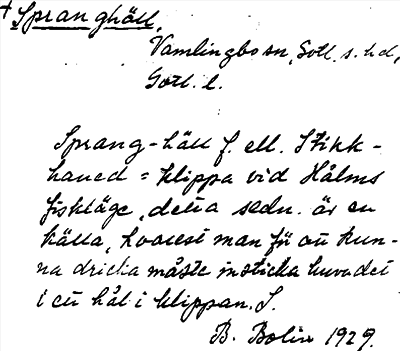 + Spranghäll,
Vamlingbo sn, Gotl. s. hd,
Gotl. l.
Sprang-häll f. ell. Stikk-
haued = klippa vid Hålms
fiskläge, detta sedn. är en
källa, hvarest man för att kun-
na dricka måste insticka huvudet
i ett hål i klippan. S.
B. Bolin 1929.